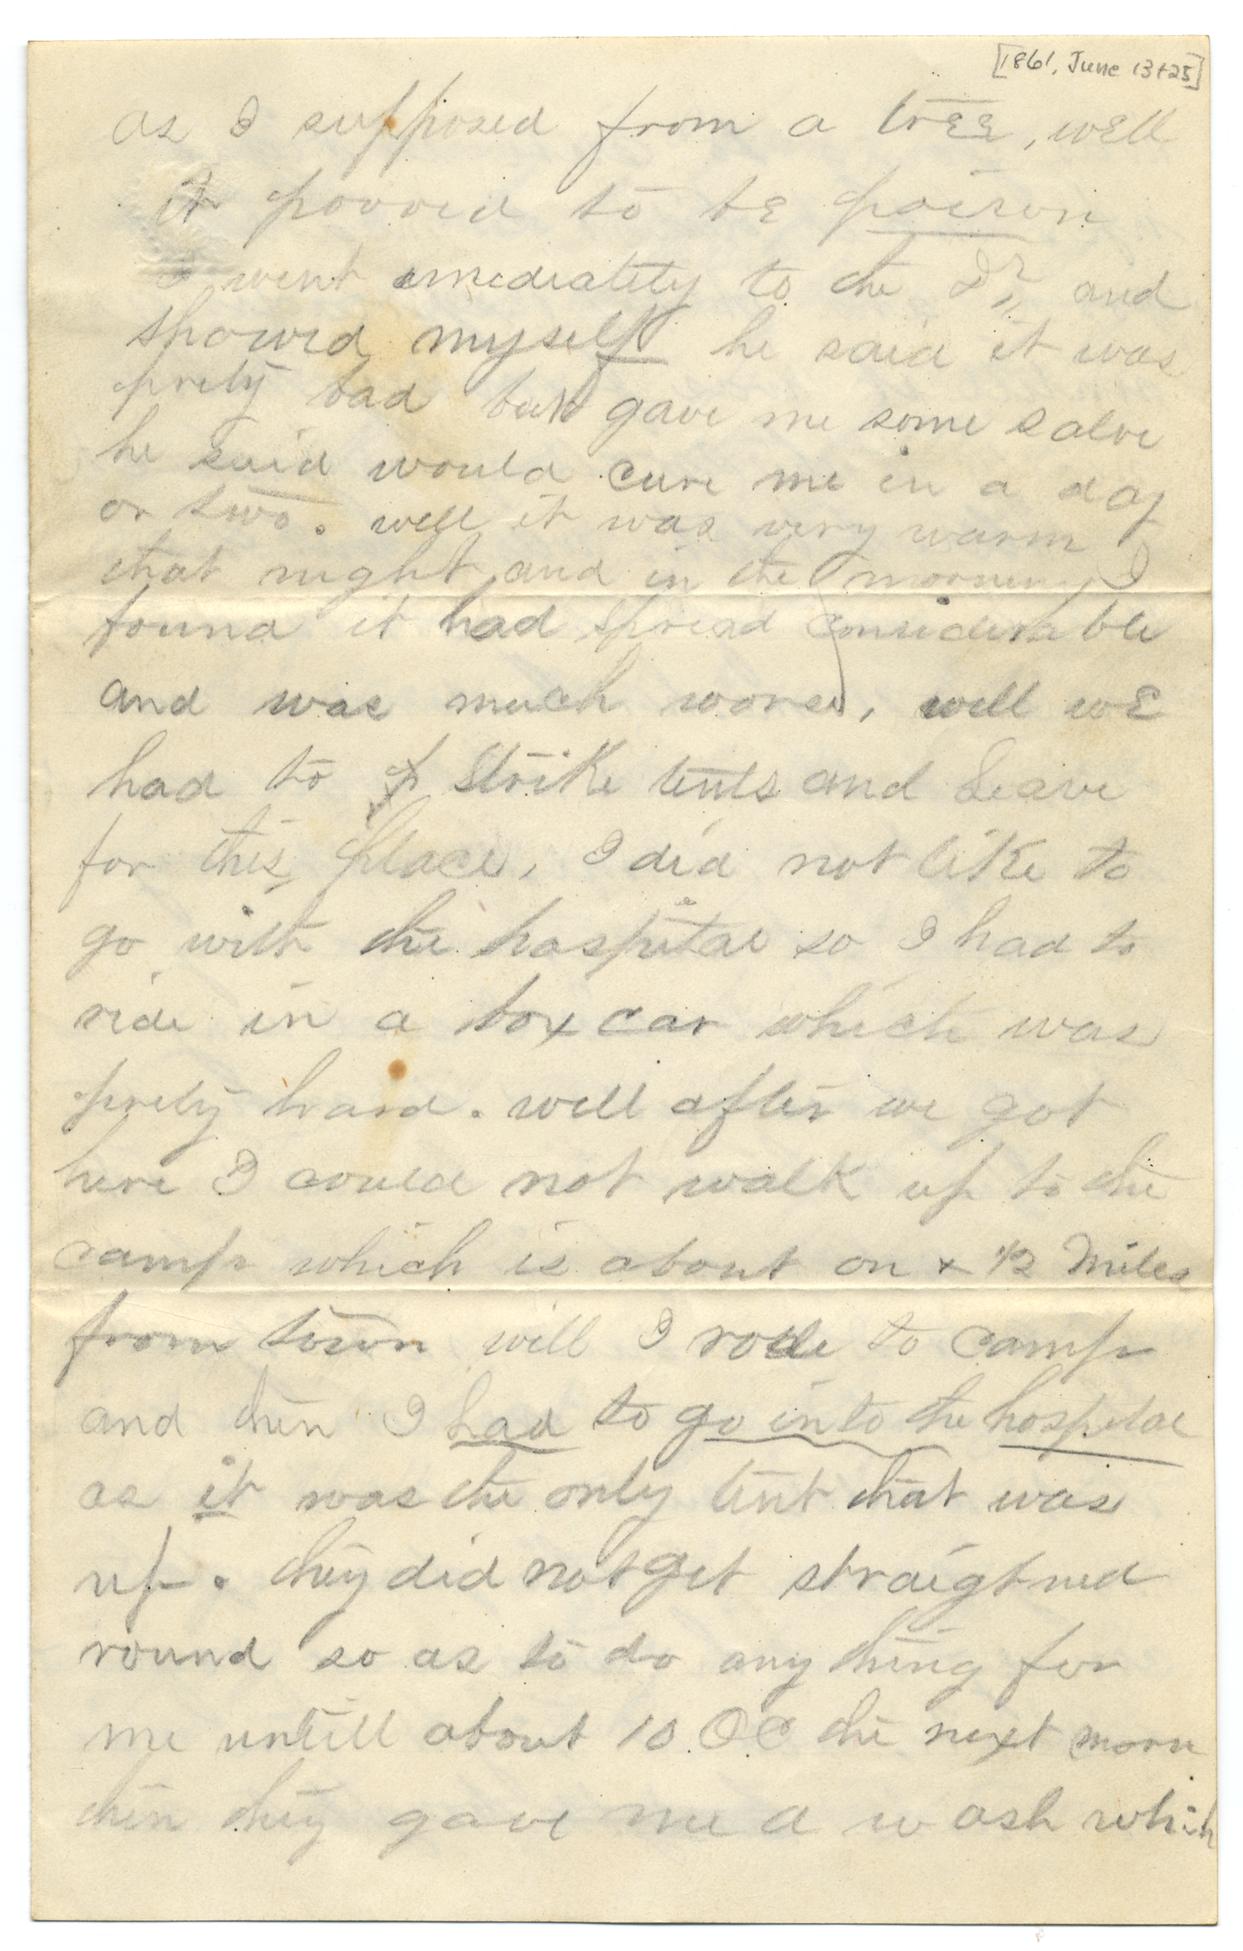 [1861, June 13+25]
as I supposed from a tree, well
it pooved to be poison
I went imediately to the Dr, and
showed myself he said it was
prety bad but gave me some salve
he said would cure me in a day
or two. well it was very warm
that night and in the morning I
found it had spread considerable
and was much worse, well we
had to strike tents and leave
for this place, I did not like to
go with the hospital so I had to
ride in a box car which was
prety hard. well after we got
here I could not walk up to the
camp which is about on + 1/2 Miles
from town well I rode to camp
and then I had to go into the hospital
as it was the only tent that was
up. they did not get straigtned
round so as to do any thing for
me untill about 10 OC the next morn
then they gave me a wash which